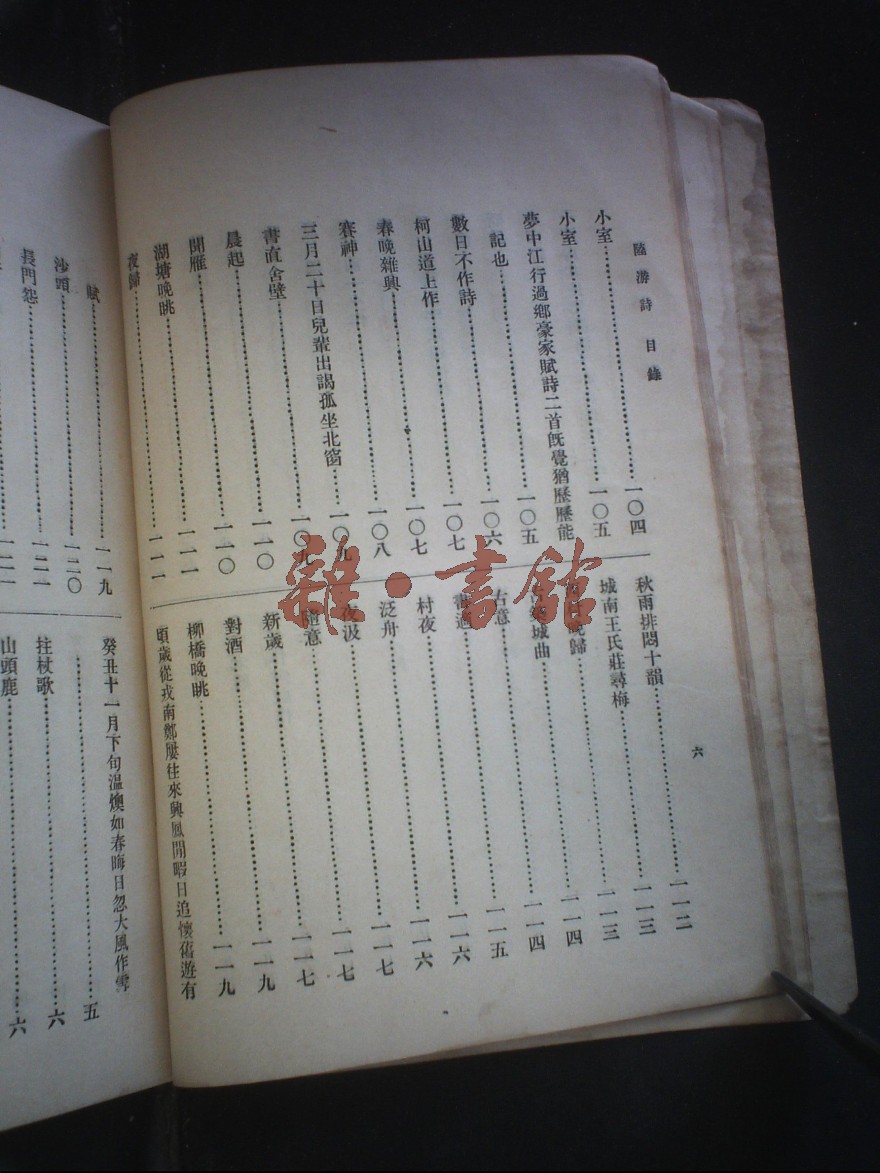 陸游詩 目錄
小室……一〇四
小室……一〇五
夢中江行過鄉豪家賦詩二首既覺猶歷歷能
記也……一〇五
數日不作詩……一〇六
柯山道上作……一〇七
春晚雜興……一〇七
賽神……一〇八
三月二十日兒輩出謁孤坐北窗……一〇九
書直舍壁……一〇九
晨起……一一〇
聞雁……一一〇
湖塘晚眺……一一一
夜歸……一一一
秋雨排悶十韻……一一二
城南王氏莊尋梅……一一三
晚歸……一一三
築城曲……一一四
古意……一一四
書適……一一五
村夜……一一六
泛舟……一一六
夜汲……一一七
隨意……一一七
新歲……一一七
對酒……一一九
柳橋晚眺……一一九
頃歲從戎南鄭屢往來興鳳間暇日追懷舊遊有
六
賦……一一九
沙頭……一二〇
長門怨……一二一
癸丑十一月下旬溫燠如春晦日忽大風作雪
……五
拄杖歌……六
山頭鹿……六
雜·書館